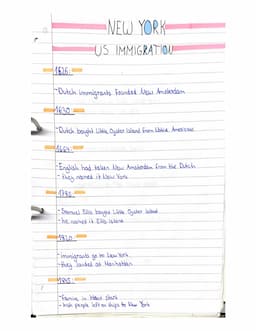 NEW YORK
US IMMIGRATION
1626
-Dutch immigrants founded New Amsterdam
1630
-Dutch bought Little Oyster Island from Native Americans
1664
-English had taken New Amsterdam from the Dutch
-they named it New York
-Samuel Ellis bought Little Oyster Island
-he named it Ellis Island
-immigrants go to New York
-they landed at Manhattan
-Famine in
-Irish people left on ships to New York